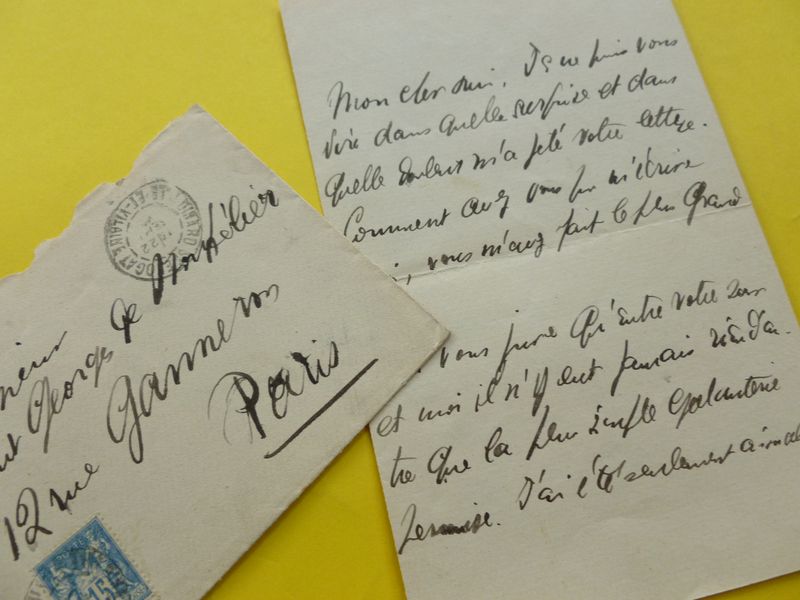 Mon cher ami, Je ne puis vous
dire dans quelle surprise et dans
quelle douleur m'a jeté votre lettre.
Comment avez vous pu m'écrire
, vous m'avez fait le plus grand
vous jure qu'entre votre
et moi il n'y eut jamais
tre que la plus simple galanterie
permise. J'ai été seulement
Georges de Montfélier
12 rue Ganneron
Paris
ET-VILAINE
15